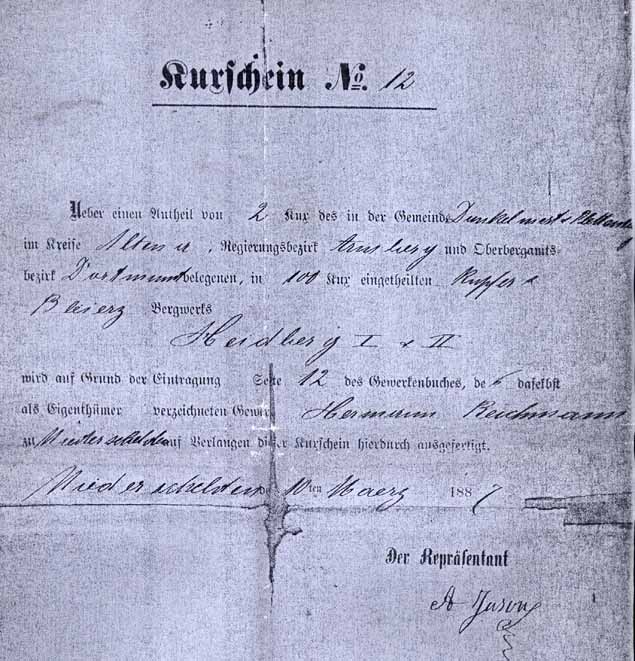 Kuxschein No. 12
Ueber einen Antheil von 2 Kux des in der Gemeinde
im Kreise Altena, Regierungsbezirk Arnsberg und Oberbergamts-
bezirk Dortmund belegenen, in 100 Kux eingetheilten Kupfer &
Bleierz Bergwerks
Heidberg I & II
wird auf Grund der Eintragung Seite 12 des Gewerkenbuches, daselbst
als Eigenthümer verzeichneten Hermann
zu Niederschelden auf Verlangen dieser Kuxschein hierdurch ausgefertigt.
Niederschelden 10ten Maerz 1887
Der Repräsentant